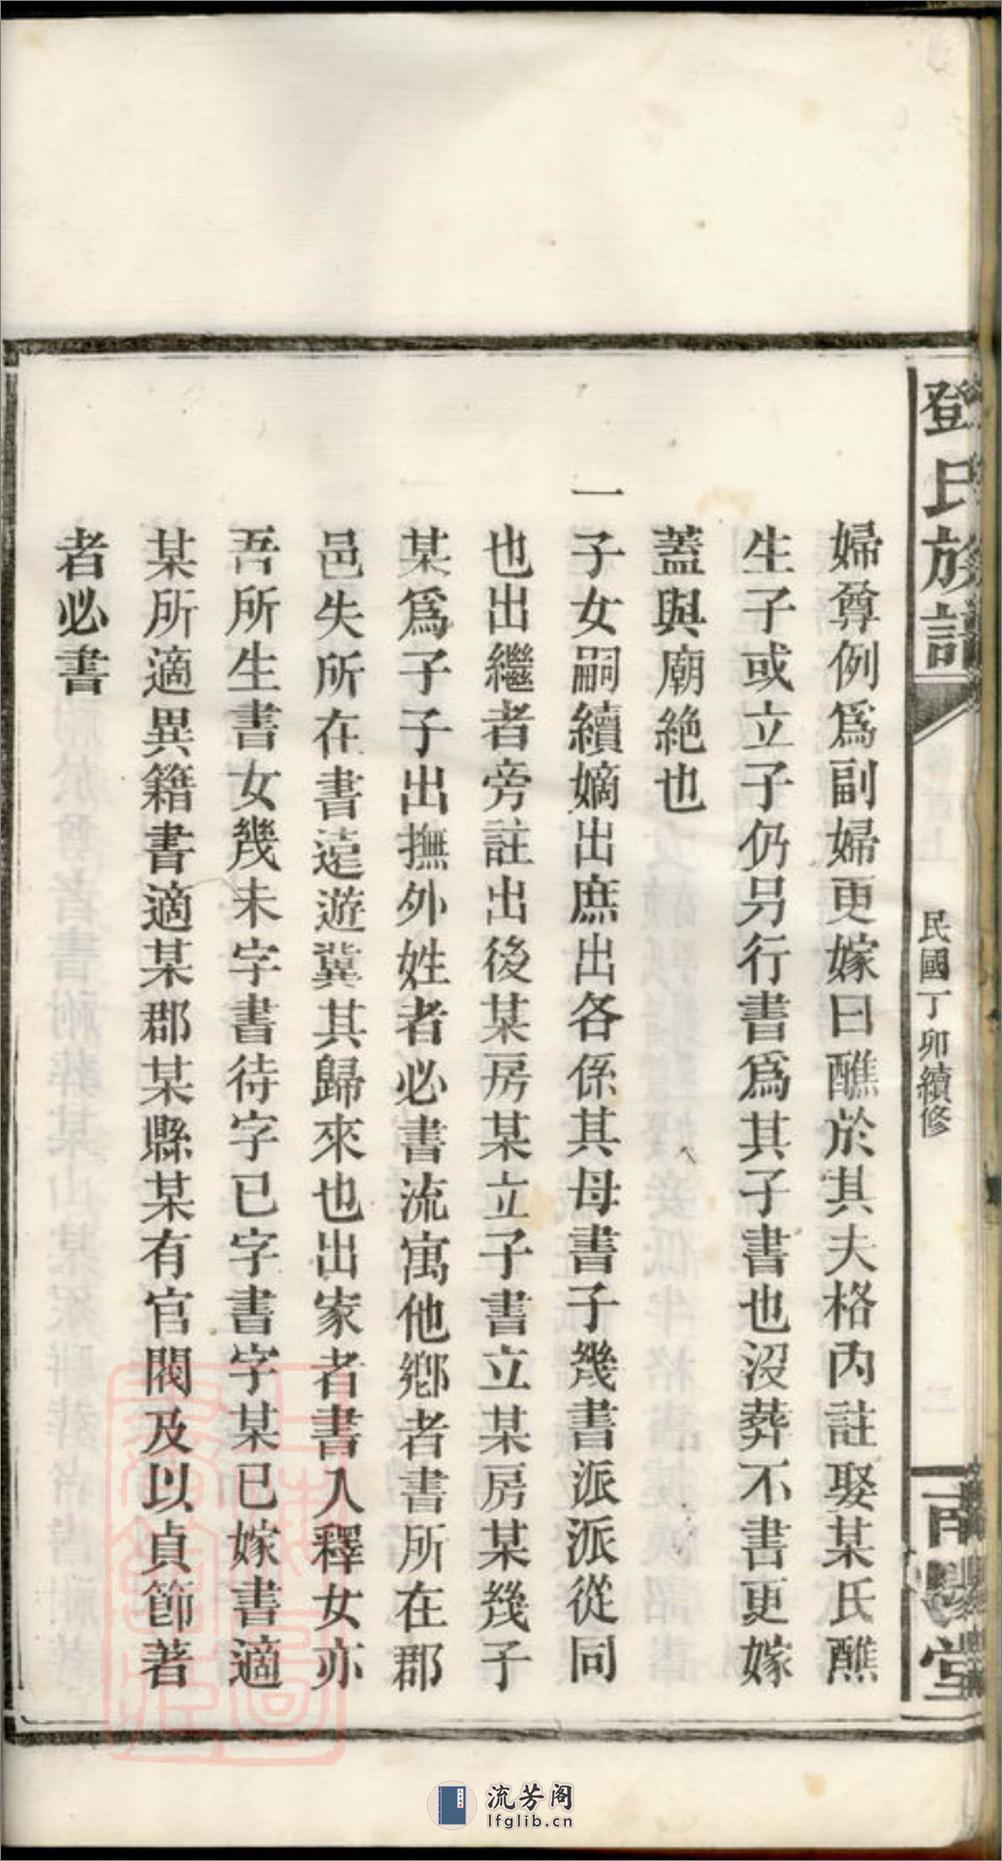 鄧氏族譜
民國丁卯續修
南陽堂
婦尊例爲副婦更嫁曰醮於其夫格內註娶某氏醮
生子或立子仍另行書爲其子書也沒葬不書更嫁
蓋與廟絶也
一子女嗣續嫡出庶出各係其母書子幾書派派從同
也出繼者旁註出後某房某立子書立某房某幾子
某爲子子出撫外姓者必書流寓他鄉者書所在郡
邑失所在書遠遊冀其歸來也出家者書入釋女亦
吾所生書女幾未字書待字已字書字某已嫁書適
某所適異籍書適某郡某縣某有官閥及以貞節著
者必書
流芳阁
lfglib.cn